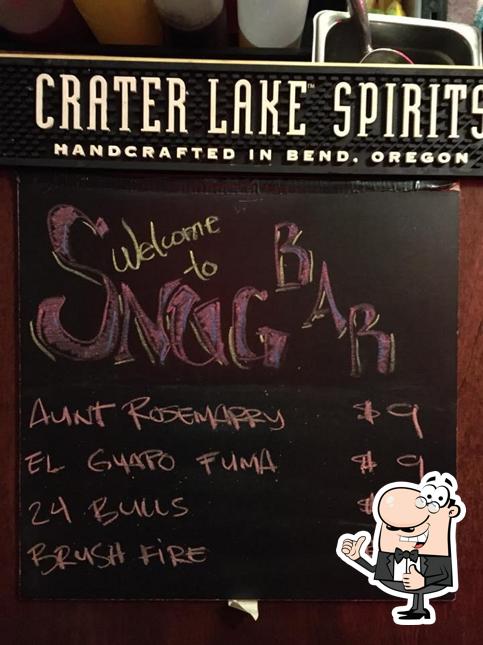 CRATER LAKE™ SPIRITS
HANDCRAFTED IN BEND, OREGON
Welcome
to
SNUG BAR
AUNT ROSEMARRY $9
EL GUAPO FUMA $9
24 BULLS $
BRUSH FIRE